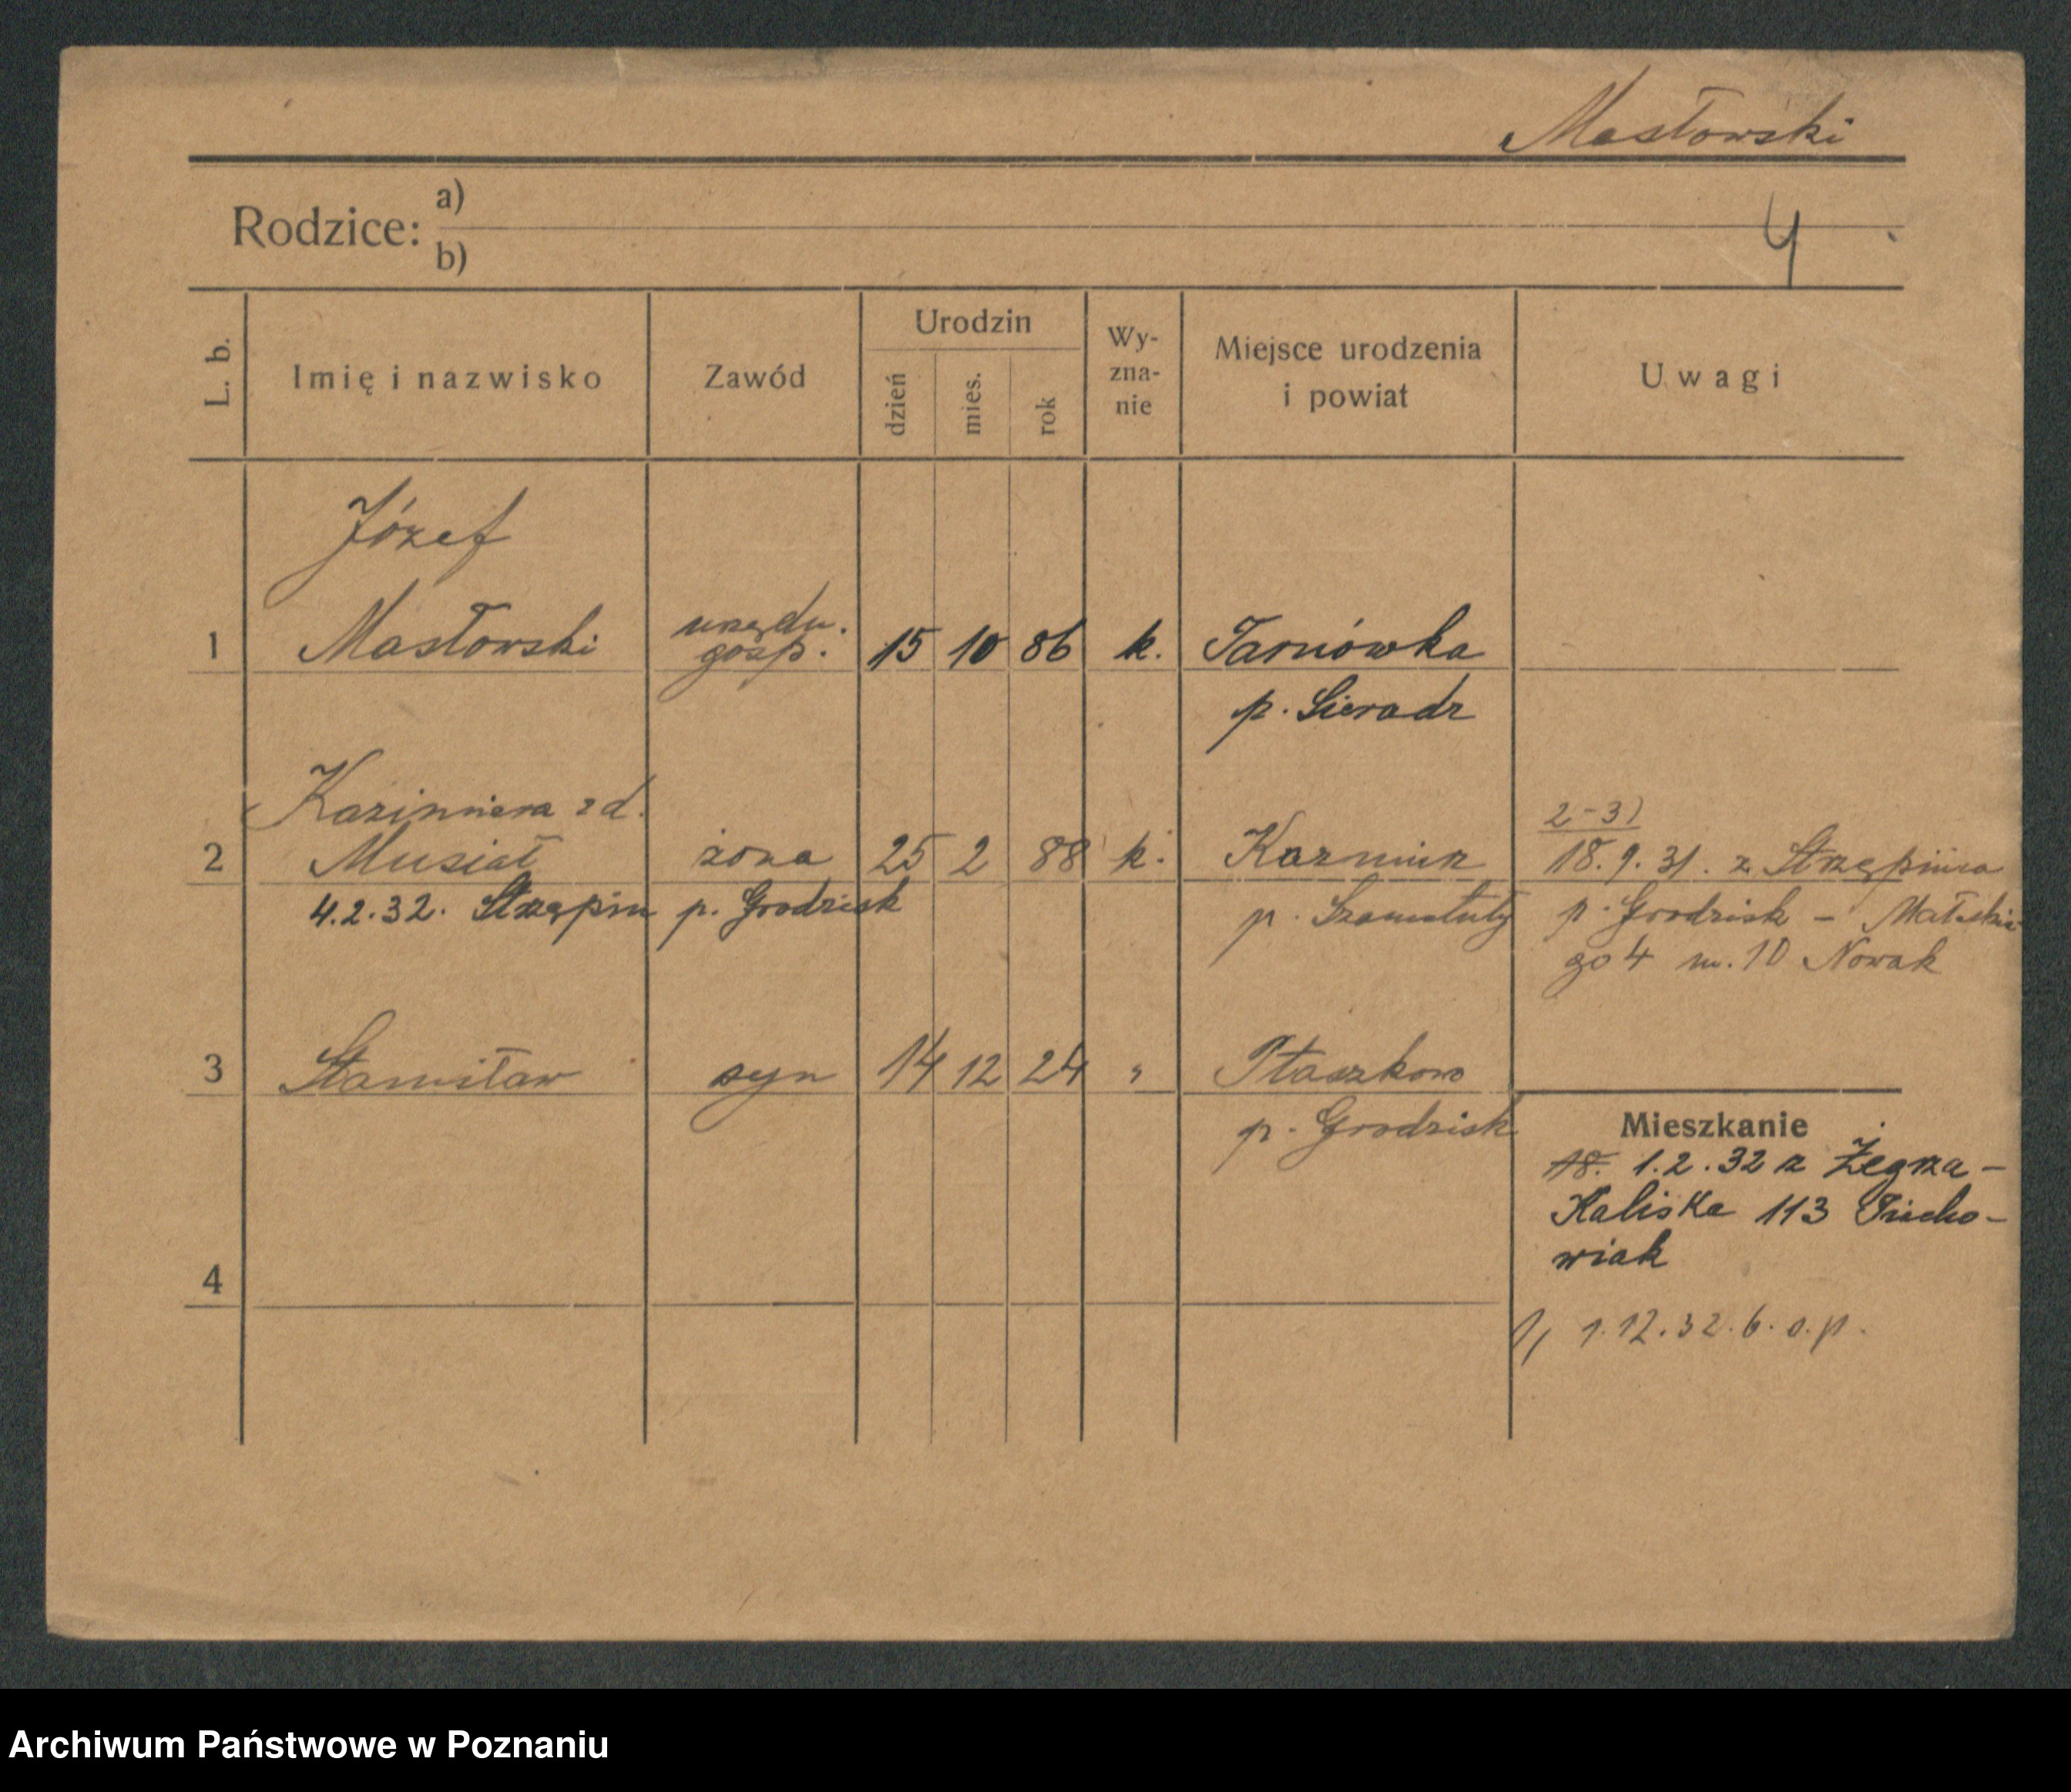 Masłowski
Rodzice: a)
b)
4
L. b.
Imię i nazwisko
Zawód
Urodzin
dzień
mies.
rok
Wy-
zna-
nie
Miejsce urodzenia
i powiat
Uwagi
Józef
1 Masłowski urzędn. gosp. 15 10 86 k. Tarnówka
p. Sieradz
Kazimiera z d.
2 Musiał żona 25 2 88 k. Kazmierz
p. Szamotuły
4.2.32. Strzępin p. Grodzisk
2-3)
18.9.31. z Strzępinia
p. Grodzisk - Małeckie
go 4 m. 10 Nowak
3 Stanisław syn 14 12 24 " Ptaszkowo
p. Grodzisk
4
Mieszkanie
18. 1.2.32 z Żegrza -
Kaliska 113
wiak
1.12.32. b. o. p.
Archiwum Państwowe w Poznaniu